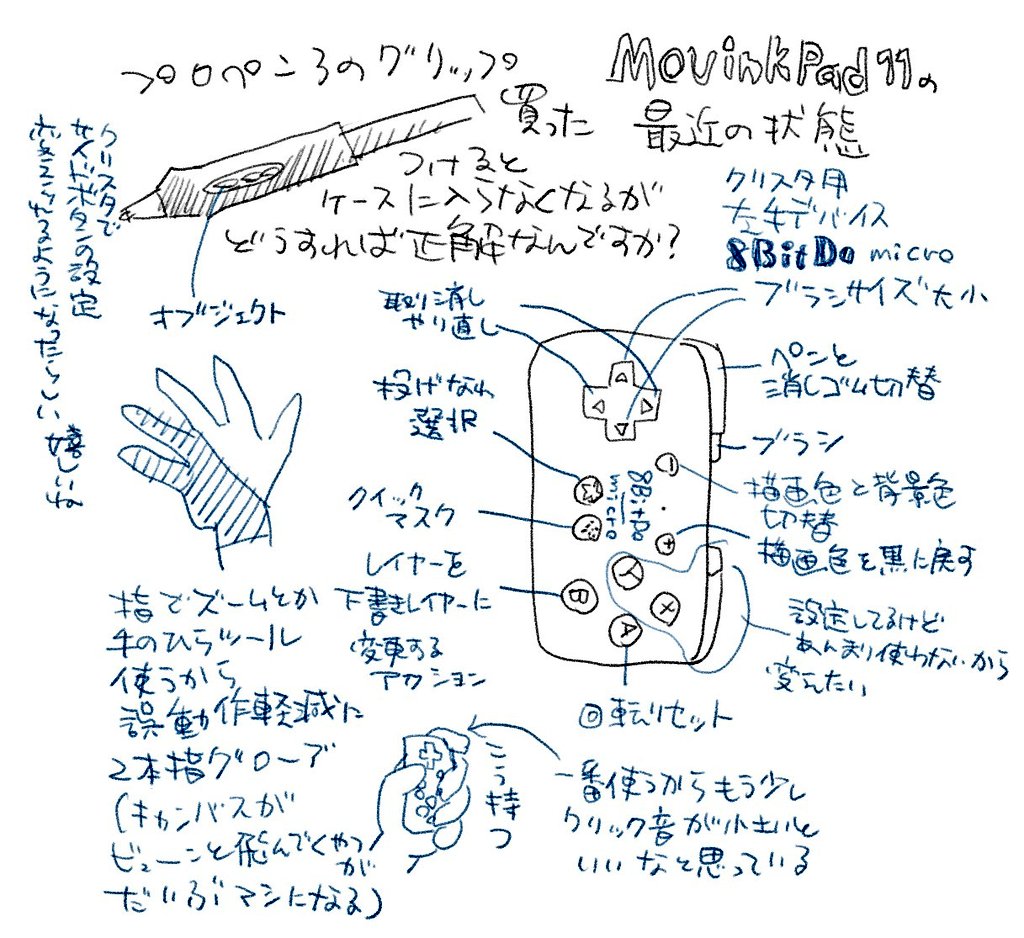 プロペン3のグリップ
買った
つけると
ケースに入らなくなるが
どうすれば正解なんですか?
MovinkPad 11の
最近の状態
クリスタ用
左手デバイス
8BitDo micro
ブラシサイズ大小
クリスタで
サイドボタンの設定
変えられるようになったらしい 嬉しいね
オブジェクト
取り消し
やり直し
投げなわ
選択
クイック
マスク
レイヤーを
下書きレイヤーに
変更する
アクション
ペンと
消しゴム切替
ブラシ
描画色と背景色
切替
描画色を黒に戻す
設定してるけど
あんまり使わないから
変えたい
8BitDo
micro
-
+
Y
X
B
A
回転リセット
指でズームとか
手のひらツール
使うから
誤動作軽減に
2本指グローブ
(キャンバスが
ビューンと飛んでくやつ
が
だいぶマシになる)
こう持つ
一番使うからもう少し
クリック音が小さいと
いいなと思っている